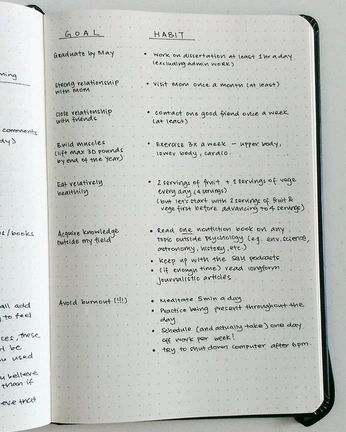 GOAL
HABIT
Graduate by May
• Work on dissertation at least 1 hr a day
(excluding admin work)
Strong relationship
with mom
• Visit Mom once a month (at least)
Close relationship
with friends
• Contact one good friend once a week
(at least)
Build muscles
(lift max 30 pounds
by end of the year)
• Exercise 3x a week – upper body,
lower body, cardio.
Eat relatively
healthily
• 2 servings of fruit + 1 servings of vege
every day (4 servings)
(but let's start with 2 servings of fruit &
vege first before advancing to 4 servings)
Acquire knowledge
outside my field
• Read one nonfiction book on any
topic outside Psychology (e.g. env. science,
astronomy, history, etc.)
• Keep up with the podcasts
• (if enough time) read longform
journalistic articles
Avoid burnout (!!!)
• Meditate 5min a day
• Practice being present throughout the
day
• Schedule (and actually take) one day
off work per week!
• try to shut down computer after 6pm.
comments
/books
all add
to feel
ces, these
t be
u used
u believe
than if
eve that